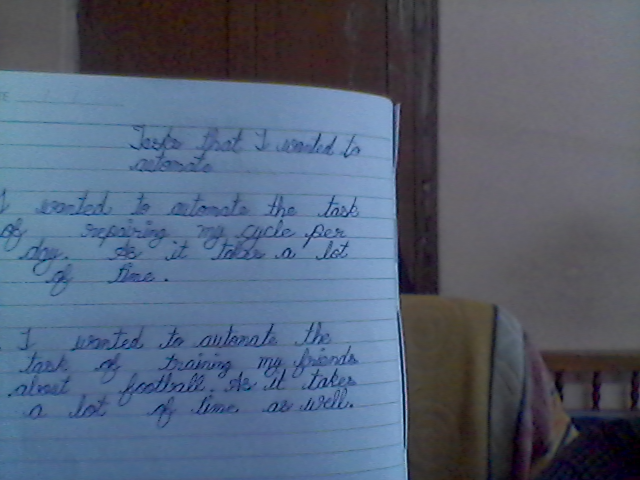 Tasks that I wanted to
automate
I wanted to automate the task
of repairing my cycle per
day. As it takes a lot
of time.
I wanted to automate the
task of training my friends
about football. As it takes
a lot of time as well.